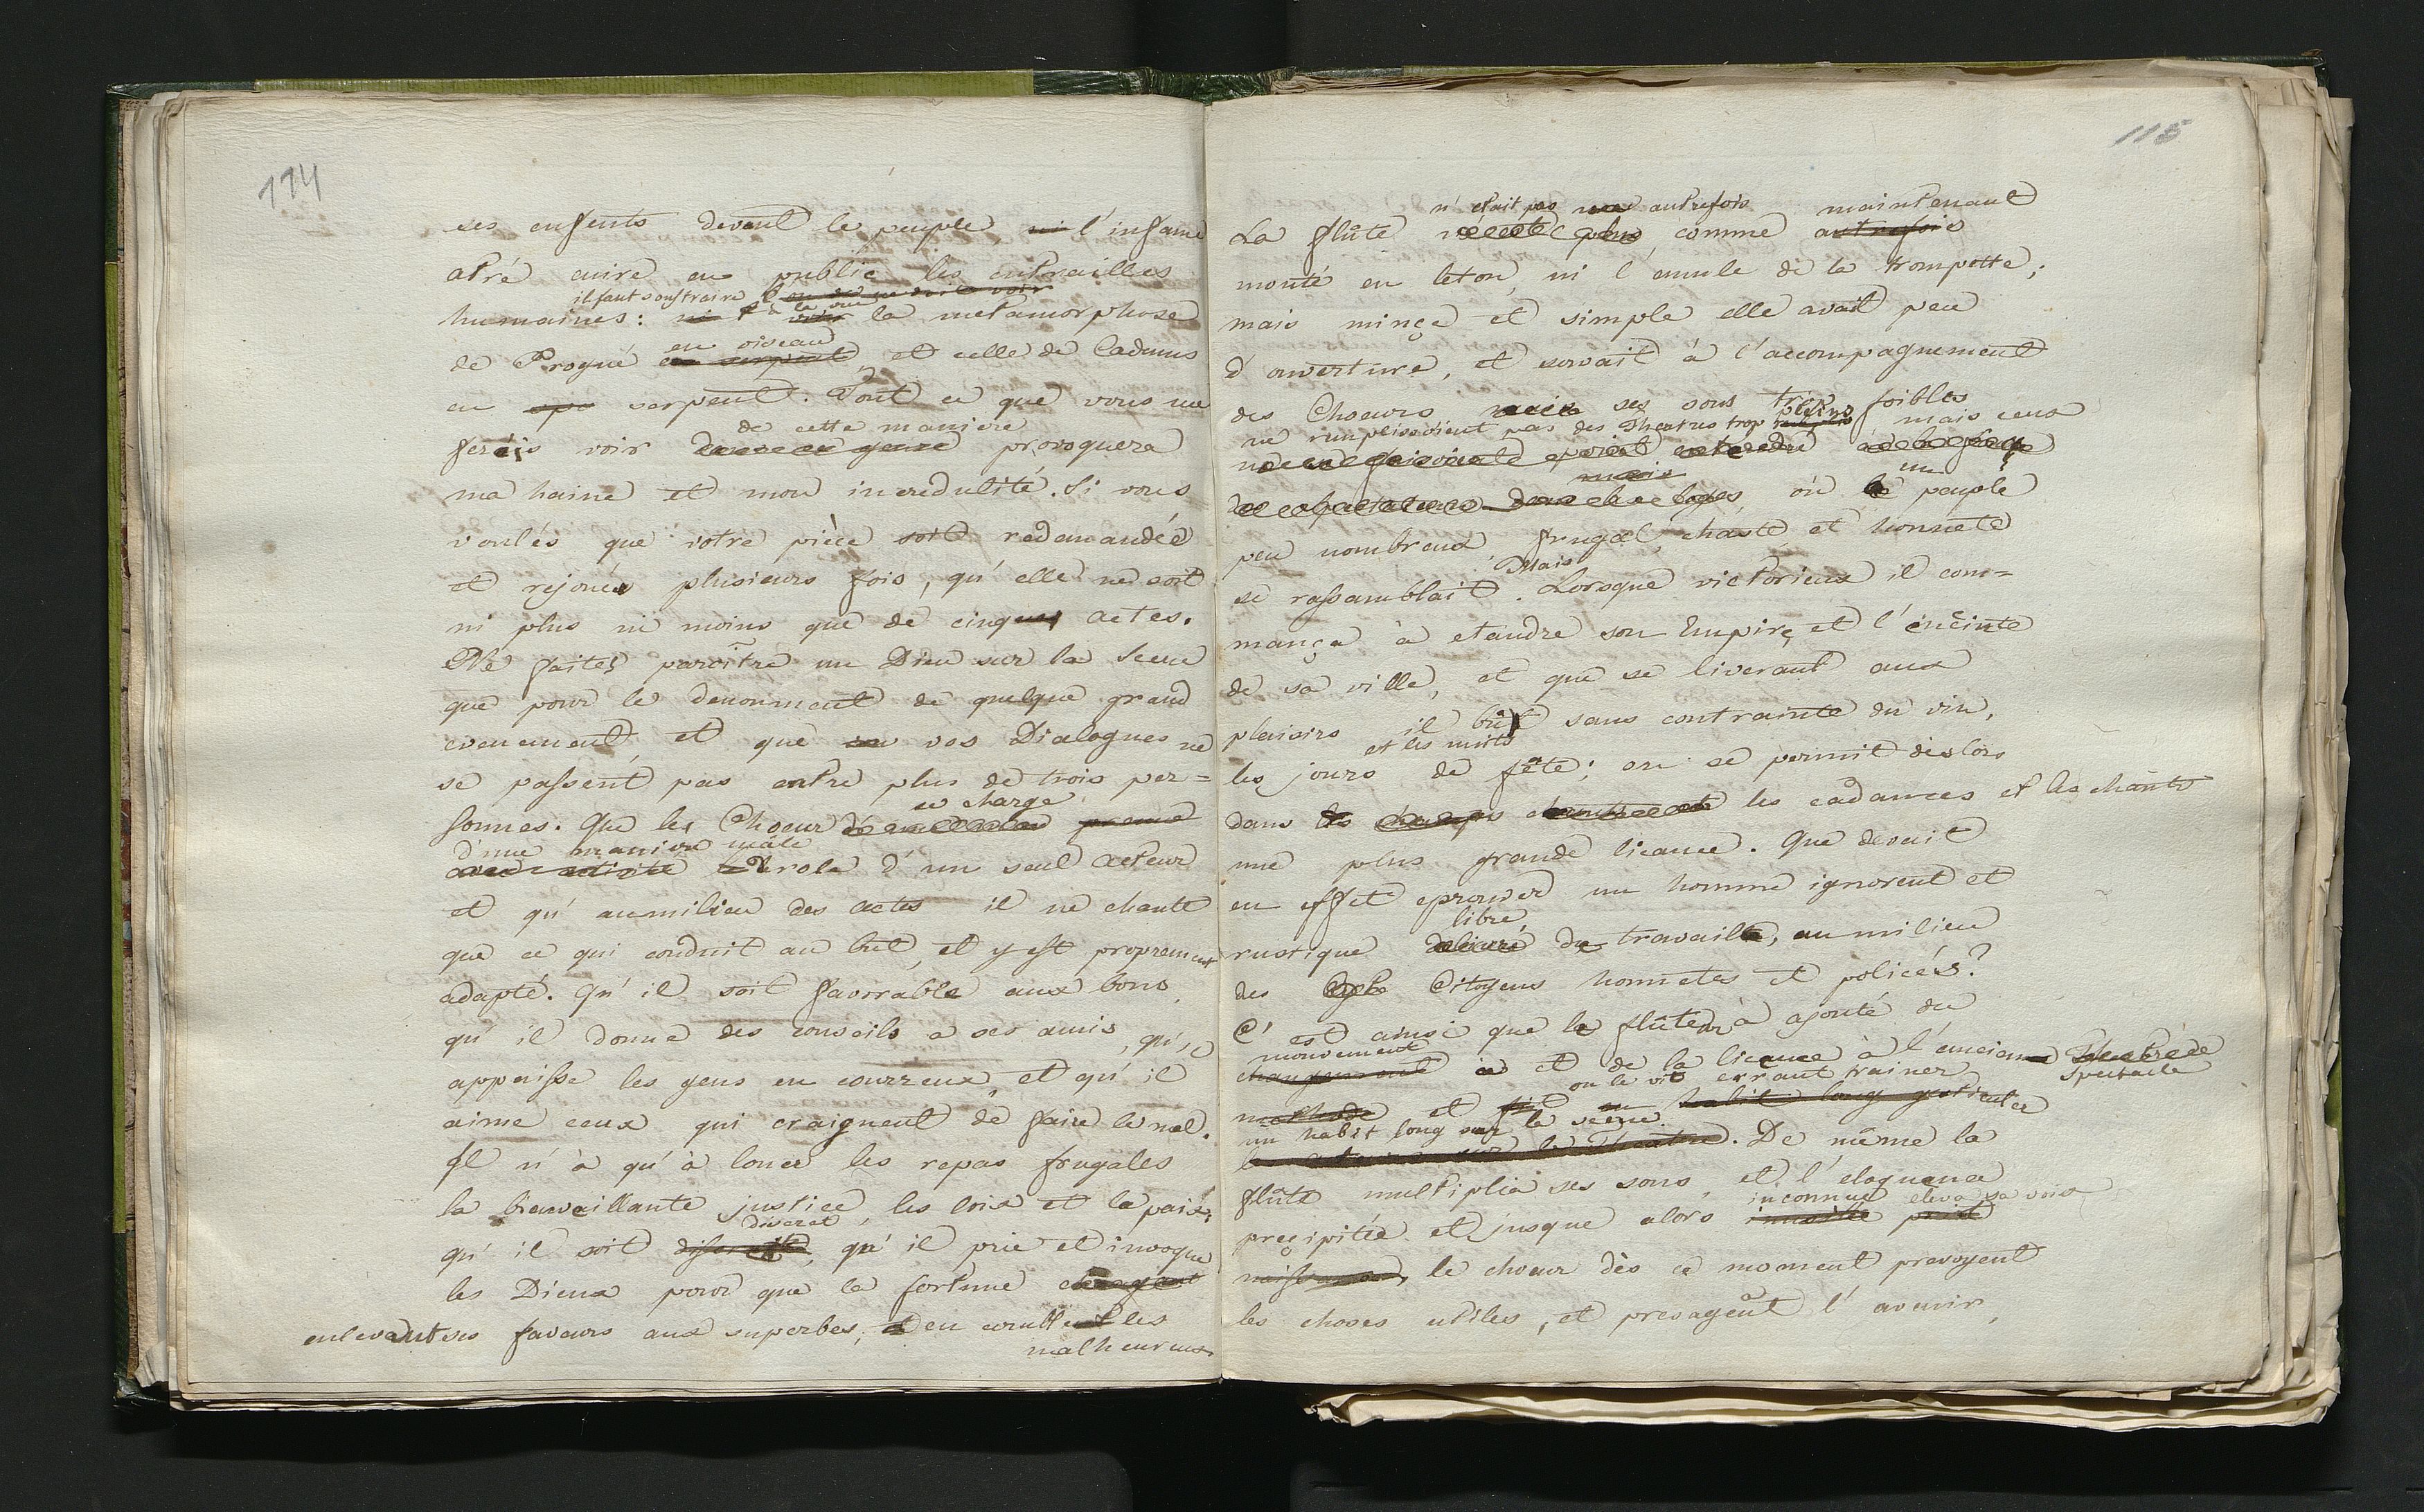 114
ses enfents devent le peuple, ni l'infame
atré cuire en public les entrailles
il faut soustraire
humaines: ni à la vue voir la metamorphose
en oiseau
de Progné en serpent, et celle de Cadmus
en serpent. Tout ce que vous me
de cette maniere
ferés voir dans ce genre provoquera
ma haine et mon incredulité. Si vous
voulés que votre pièce soit redamandée
et rejouée plusieurs fois, qu'elle ne soit
ni plus ni moins que de cinq actes.
Ne faites paroître un Dieu sur la scene
que pour le denoument de quelque grand
evenement, et que vos Dialogues ne
se passent pas entre plus de trois per=
sonnes. Que les Choeur
se charge
prenne
d'une maniere mâle
du role d'un seul acteur
et qu'au milieu des actes il ne chante
que ce qui conduit au but, et y est proprement
adapté. Qu'il soit favorable aux bons,
qu'il donne des conseils a ses amis, qu'il
appaisse les gens en courreux, et qu'il
aime ceux qui craignent de faire le mal.
Il n'à qu'à louer les repas frugales
la bienvaillante justice, les loix et la paix;
discret
qu'il soit, qu'il prie et invoque
les Dieux pour que la fortune
enlevant ses faveurs aux superbes, en comble les
malheureux
115
n'etait pas autrefois maintenant
La flûte n'était plus, comme autrefois
monté en leton, ni l'emule de la trompette;
mais minçe et simple elle avait peu
d'ouverture, et servait à l'accompagnement
des Choeurs ses sons très foibles
ne remplissoient pas des Theatres trop pleins mais ceux
mais un
où le peuple
peu nombreux, frugal, chaste et honnete
Mais
se rassamblait. Lorsque victorieux il com=
mança à etandre son Empire, et l'enceinte
de sa ville, et que se liverant aux
plaisirs il bût sans contrainte du vin,
et les nuits
les jours de fête; on se permit dès lors
dans les cadances et les chants
une plus grande licance. Que devait
en effet eprouver un homme ignorent et
libre
rustique du travail, au milieu
des Citoyens honnetes et policés?
C'est ainsi que le flûteur à ajouté du
mouvement
changement et de la licance à l'ancien Theatre de
on le vit errant trainer
Spectacle
methode et fit en habit long gesticuler
un habit long sur la scène
les acteurs sur le Theatre. De même la
flûte multiplia ses sons, et l'eloquence
inconnue eleva sa voix
preçipitée et jusque alors inusitée prit
naissance, le choeur dès ce moment prevoyent
les choses utiles, et presageant l'avenir,